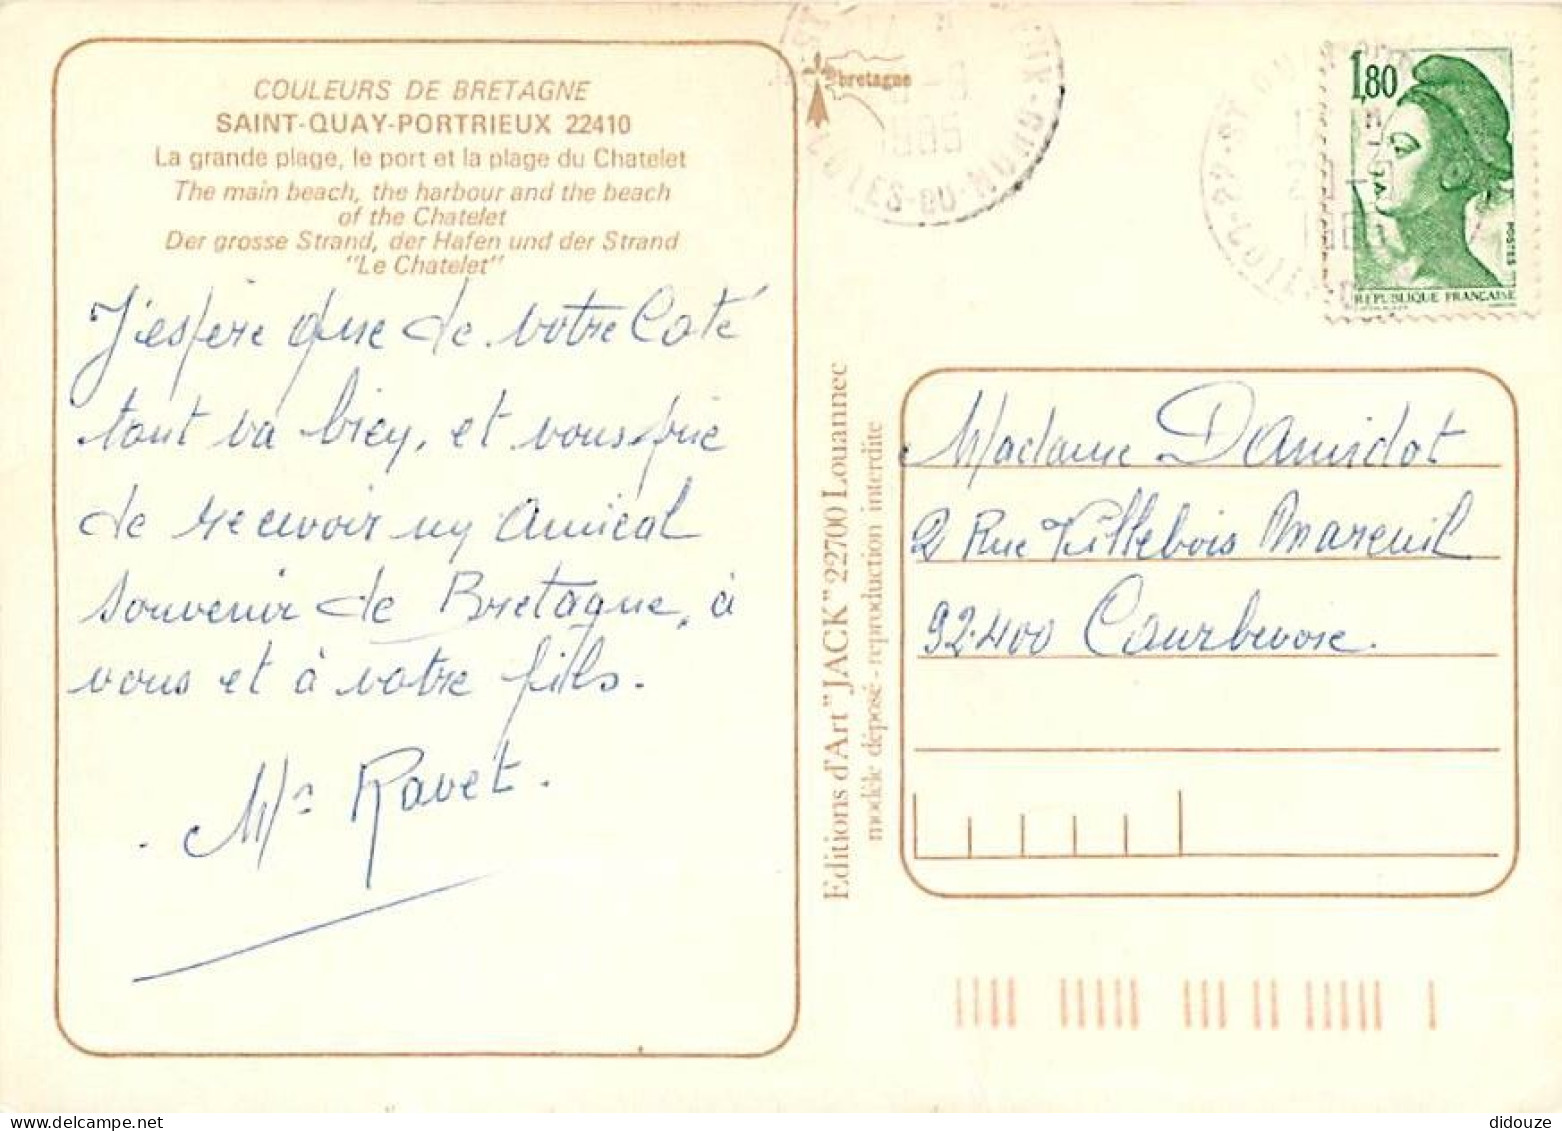 COULEURS DE BRETAGNE
SAINT-QUAY-PORTRIEUX 22410
La grande plage, le port et la plage du Chatelet
The main beach, the harbour and the beach
of the Chatelet
Der grosse Strand, der Hafen und der Strand
"Le Chatelet"
J'espère que de votre Coté
tout va bien, et vous prie
de recevoir un Amical
souvenir de Bretagne, à
vous et à votre fils.
Mr Ravet.
Editions d'Art "JACK" 22700 Louannec
modèle déposé - reproduction interdite
bretagne
1985
COTES-DU-NORD
1,80
POSTES
REPUBLIQUE FRANÇAISE
Madame Damidot
2 Rue Villebois Mareuil
92.400 Courbevoie.
didouze
www.delcampe.net